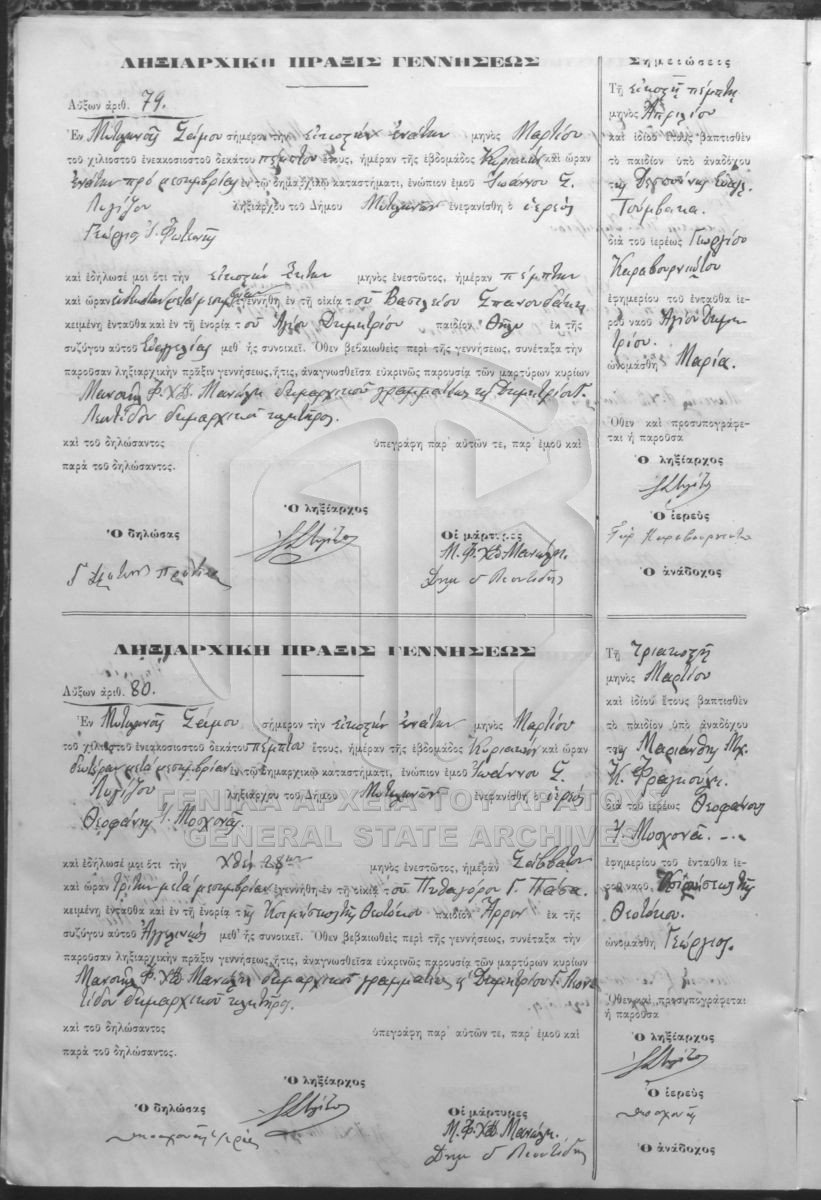 ΛΗΞΙΑΡΧΙΚΗ ΠΡΑΞΙΣ ΓΕΝΝΗΣΕΩΣ
Αὔξων ἀριθ. 79.
Ἐν Μυτιληνοῖς Σάμου σήμερον τὴν εἰκοστὴν ἐνάτην μηνὸς Μαρτίου
τοῦ χιλιοστοῦ ἐνεακοσιοστοῦ δεκάτου πέμπτου ἔτους, ἡμέραν τῆς ἑβδομάδος Κυριακὴν καὶ ὥραν
ἐνάτην πρὸ μεσημβρίας ἐν τῷ δημαρχικῷ καταστήματι, ἐνώπιον ἐμοῦ Ἰωάννου Σ.
ληξιάρχου τοῦ Δήμου Μυτιληνῶν ἐνεφανίσθη ὁ ἱερεὺς
Γεώργιος
καὶ ἐδήλωσέ μοι ὅτι τὴν εἰκοστὴν ἕκτην μηνὸς ἐνεστῶτος, ἡμέραν πέμπτην
καὶ ὥραν ἑνδεκάτην μετὰ μεσημβρίαν ἐγεννήθη ἐν τῇ οἰκίᾳ τοῦ Βασιλείου
κειμένῃ ἐνταῦθα καὶ ἐν τῇ ἐνορίᾳ τοῦ Ἁγίου Δημητρίου παιδίον θῆλυ ἐκ τῆς
συζύγου αὐτοῦ Εὐαγγελίας μεθ' ἧς συνοικεῖ. Ὅθεν βεβαιωθεὶς περὶ τῆς γεννήσεως, συνέταξα τὴν
παροῦσαν ληξιαρχικὴν πρᾶξιν γεννήσεως, ἥτις, ἀναγνωσθεῖσα εὐκρινῶς παρουσίᾳ τῶν μαρτύρων κυρίων
Μανουὴλ Φ. Χ΄΄Δ. Μανώλη δημαρχικοῦ γραμματέως κ Δημητρίου Γ.
Λεοντίδου δημαρχικοῦ κλητῆρος.
καὶ τοῦ δηλώσαντος ὑπεγράφη παρ' αὐτῶν τε, παρ' ἐμοῦ καὶ
παρὰ τοῦ δηλώσαντος.
Ὁ ληξίαρχος
Ὁ δηλώσας
Οἱ μάρτυρες
Μ. Φ. Χ΄΄Δ. Μανώλη
Δημ Γ Λεοντίδης
Σημειώσεις
Τῇ εἰκοστῇ πέμπτῃ
μηνὸς Ἀπριλίου
καὶ ἰδίου ἔτους βαπτισθὲν
τὸ παιδίον ὑπὸ ἀναδόχου
τῆς Δεσποίνης Εὐαγ.
Τούμβακα.
διὰ τοῦ ἱερέως Γεωργίου
Καραβουρνιώτου
ἐφημερίου τοῦ ἐνταῦθα ἱε-
ροῦ ναοῦ Ἁγίου Δημη-
τρίου.
ὠνομάσθη Μαρία.
Ὅθεν καὶ προσυπογράφε-
ται ἡ παροῦσα
Ὁ ληξίαρχος
Ὁ ἱερεὺς
Ὁ ἀνάδοχος
ΛΗΞΙΑΡΧΙΚΗ ΠΡΑΞΙΣ ΓΕΝΝΗΣΕΩΣ
Αὔξων ἀριθ. 80.
Ἐν Μυτιληνοῖς Σάμου σήμερον τὴν εἰκοστὴν ἐνάτην μηνὸς Μαρτίου
τοῦ χιλιοστοῦ ἐνεακοσιοστοῦ δεκάτου πέμπτου ἔτους, ἡμέραν τῆς ἑβδομάδος Κυριακὴν καὶ ὥραν
δευτέραν μετὰ μεσημβρίαν ἐν τῷ δημαρχικῷ καταστήματι, ἐνώπιον ἐμοῦ Ἰωάννου Σ.
ληξιάρχου τοῦ Δήμου Μυτιληνῶν ἐνεφανίσθη ὁ ἱερεὺς
Θεοφάνης Ἰ. Μοσχονᾶς
καὶ ἐδήλωσέ μοι ὅτι τὴν χθὲς 28ην μηνὸς ἐνεστῶτος, ἡμέραν Σάββατον
καὶ ὥραν τρίτην μετὰ μεσημβρίαν ἐγεννήθη ἐν τῇ οἰκίᾳ τοῦ Πυθαγόρου Γ. Πάσα
κειμένῃ ἐνταῦθα καὶ ἐν τῇ ἐνορίᾳ τῆς Κοιμήσεως τῆς Θεοτόκου παιδίον Ἄρρεν ἐκ τῆς
συζύγου αὐτοῦ Ἀγγελικῆς μεθ' ἧς συνοικεῖ. Ὅθεν βεβαιωθεὶς περὶ τῆς γεννήσεως, συνέταξα τὴν
παροῦσαν ληξιαρχικὴν πρᾶξιν γεννήσεως, ἥτις, ἀναγνωσθεῖσα εὐκρινῶς παρουσίᾳ τῶν μαρτύρων κυρίων
Μανουὴλ Φ. Χ΄΄Δ. Μανώλη δημαρχικοῦ γραμματέως κ Δημητρίου Γ. Λεον
τίδου δημαρχικοῦ κλητῆρος.
καὶ τοῦ δηλώσαντος ὑπεγράφη παρ' αὐτῶν τε, παρ' ἐμοῦ καὶ
παρὰ τοῦ δηλώσαντος.
Ὁ ληξίαρχος
Ὁ δηλώσας
Οἱ μάρτυρες
Μ. Φ. Χ΄΄Δ. Μανώλη
Δημ Γ Λεοντίδης
Τῇ τριακοστῇ
μηνὸς Μαρτίου
καὶ ἰδίου ἔτους βαπτισθὲν
τὸ παιδίον ὑπὸ ἀναδόχου
τῆς Μαριάνθης Μχ.
Κ. Φραγκούλη.
διὰ τοῦ ἱερέως Θεοφάνους
Ἰ. Μοσχονᾶ.
ἐφημερίου τοῦ ἐνταῦθα ἱε-
ροῦ ναοῦ Κοιμήσεως τῆς
Θεοτόκου.
ὠνομάσθη Γεώργιος.
Ὅθεν καὶ προσυπογράφεται
ἡ παροῦσα
Ὁ ληξίαρχος
Ὁ ἱερεὺς
Ὁ ἀνάδοχος
ΓΕΝΙΚΑ ΑΡΧΕΙΑ ΤΟΥ ΚΡΑΤΟΥΣ
GENERAL STATE ARCHIVES